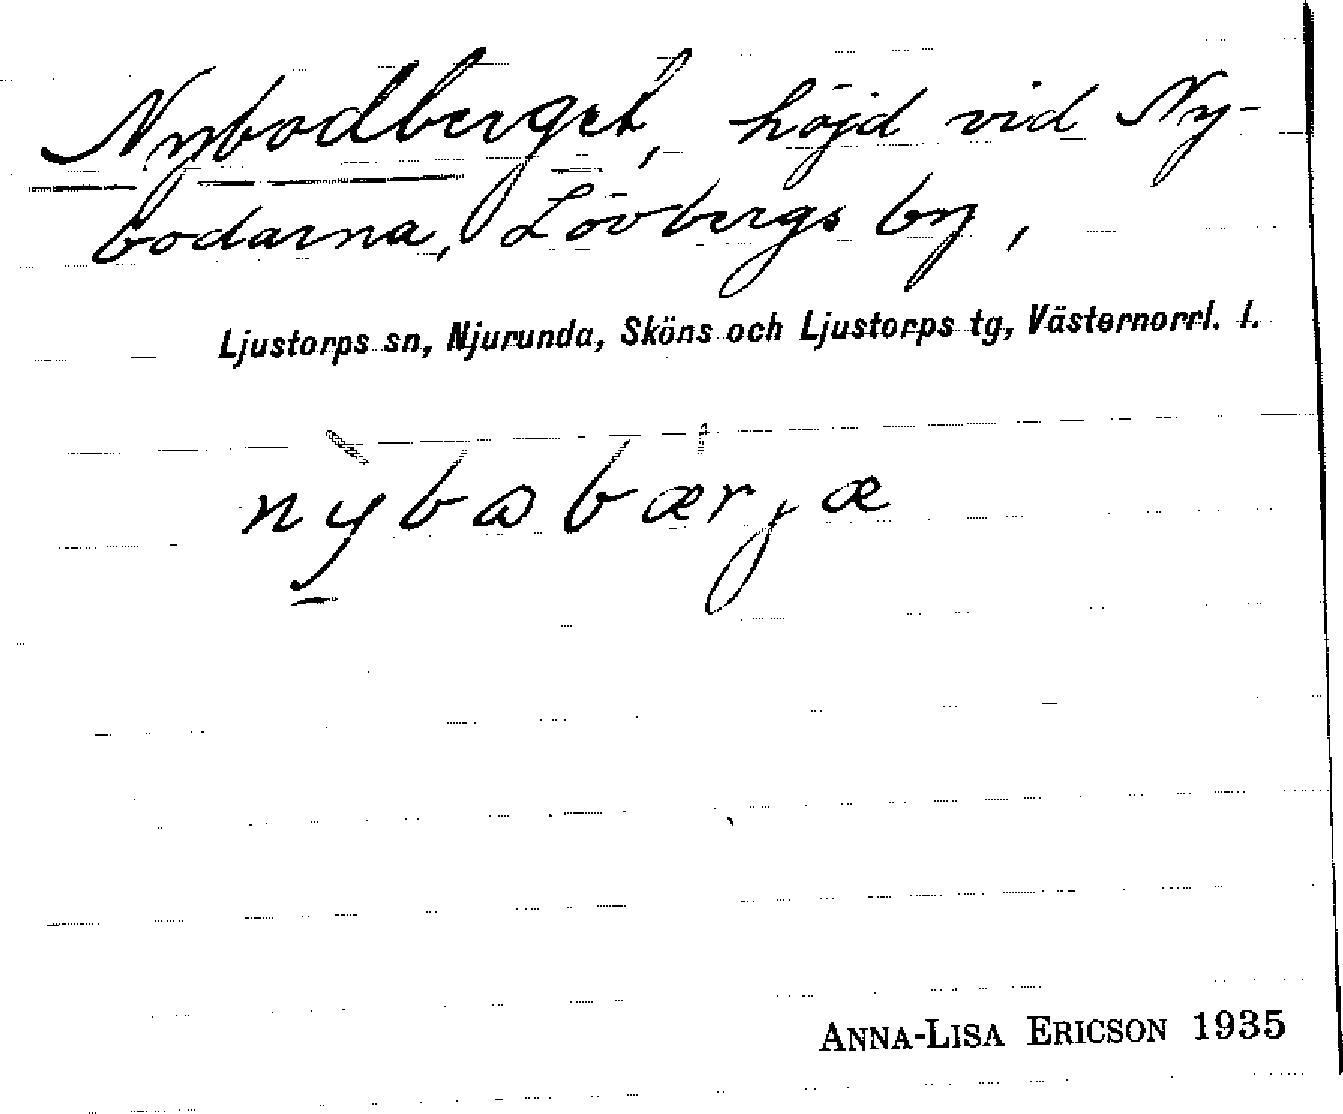 Nybodberget, höjd vid Ny-
bodarna, Lövbergs by,
Ljustorps sn, Njurunda, Sköns och Ljustorps tg, Västernorrl. l.
nybɷbærjæ
ANNA-LISA ERICSON 1935